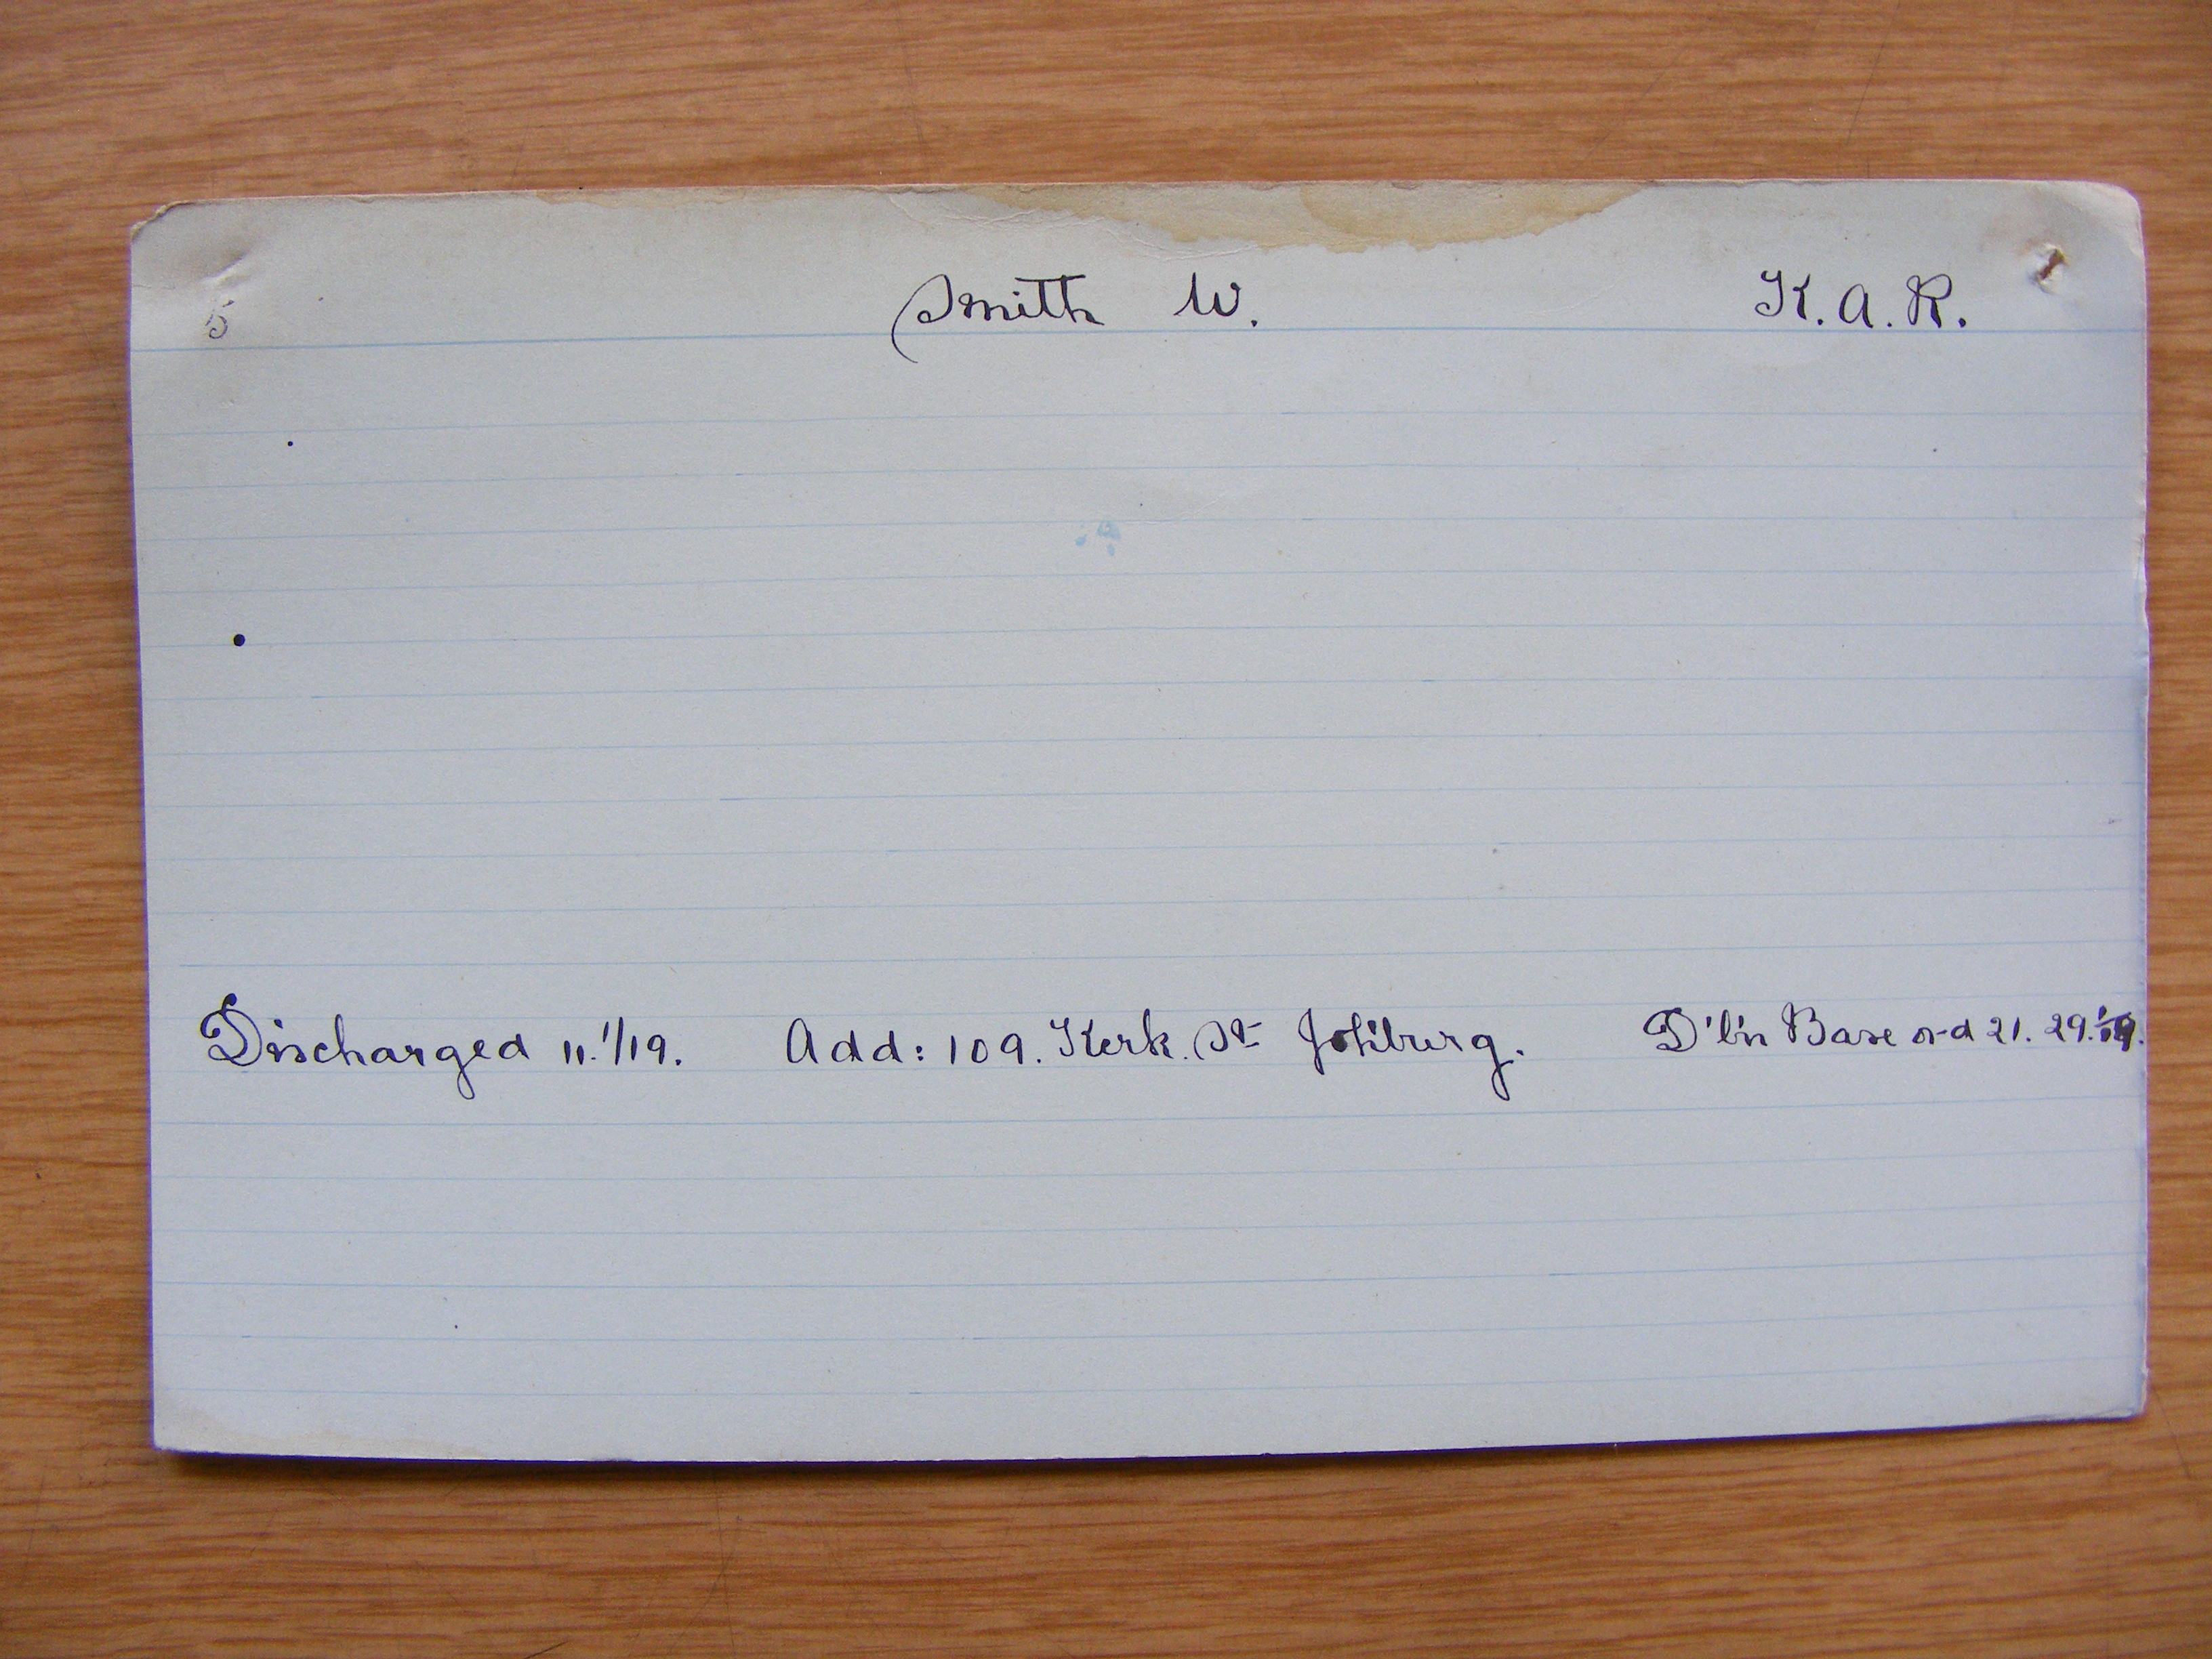 5 Smith W. K.A.R.
Discharged 11.1/19. Add: 109. Kerk. St Joh'burg. D'b'n Base o-d 21. 29.1/19.